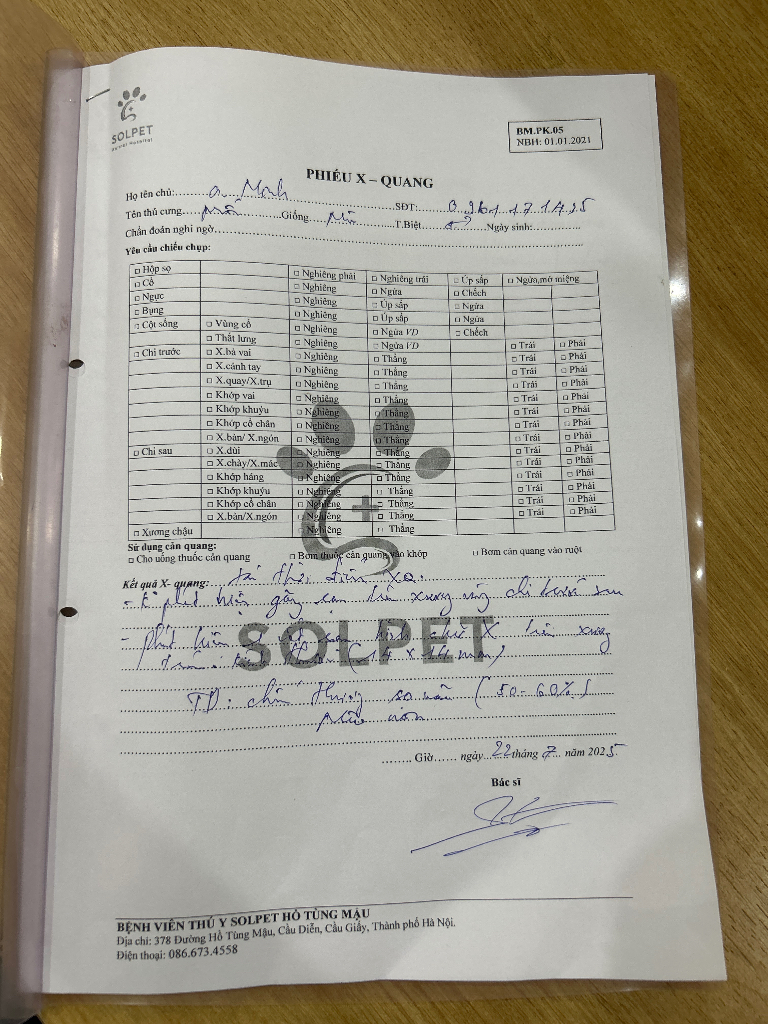 SOLPET
Animal Hospital
BM.PK.05
NBH: 01.01.2021
PHIẾU X – QUANG
Họ tên chủ: a. Minh SĐT:
Tên thú cưng Giống T.Biệt ♂ Ngày sinh:
Chẩn đoán nghi ngờ
Yêu cầu chiếu chụp:
□ Hộp sọ □ Nghiêng phải □ Nghiêng trái □ Úp sấp □ Ngửa,mở miệng
□ Cổ □ Nghiêng □ Ngửa □ Chếch
□ Ngực □ Nghiêng □ Úp sấp □ Ngửa
□ Bụng □ Nghiêng □ Úp sấp □ Ngửa
□ Cột sống □ Vùng cổ □ Nghiêng □ Ngửa VD □ Chếch
□ Thắt lưng □ Nghiêng □ Ngửa VD □ Trái □ Phải
□ Chi trước □ X.bả vai □ Nghiêng □ Thẳng □ Trái □ Phải
□ X.cánh tay □ Nghiêng □ Thẳng □ Trái □ Phải
□ X.quay/X.trụ □ Nghiêng □ Thẳng □ Trái □ Phải
□ Khớp vai □ Nghiêng □ Thẳng □ Trái □ Phải
□ Khớp khuỷu □ Nghiêng □ Thẳng □ Trái □ Phải
□ Khớp cổ chân □ Nghiêng □ Thẳng □ Trái □ Phải
□ X.bàn/ X.ngón □ Nghiêng □ Thẳng □ Trái □ Phải
□ Chi sau □ X.đùi □ Nghiêng □ Thẳng □ Trái □ Phải
□ X.chày/X.mác □ Nghiêng □ Thẳng □ Trái □ Phải
□ Khớp háng □ Nghiêng □ Thẳng □ Trái □ Phải
□ Khớp khuỷu □ Nghiêng □ Thẳng □ Trái □ Phải
□ Khớp cổ chân □ Nghiêng □ Thẳng □ Trái □ Phải
□ X.bàn/X.ngón □ Nghiêng □ Thẳng
□ Xương chậu □ Nghiêng □ Thẳng
Sử dụng cản quang:
□ Cho uống thuốc cản quang □ Bơm thuốc cản quang vào khớp □ Bơm cản quang vào ruột
Kết quả X- quang: tại thời điểm XQ.
- K phát hiện gãy xương chi trước sau
- phát hiện X trên xương
SOLPET
TD: chấn thương sọ não (50-60%)
Giờ ngày 22 tháng 7 năm 2025
Bác sĩ
BỆNH VIỆN THÚ Y SOLPET HỒ TÙNG MẬU
Địa chỉ: 378 Đường Hồ Tùng Mậu, Cầu Diễn, Cầu Giấy, Thành phố Hà Nội.
Điện thoại: 086.673.4558